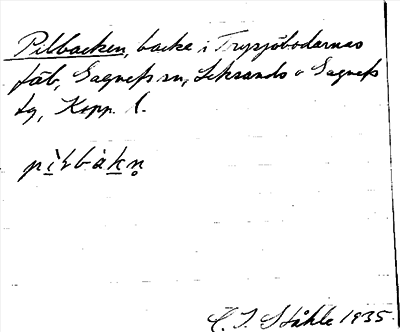 Pilbacken, backe i Trysjöbodarnas
fäb, Gagnefs sn, Leksands o Gagnefs
tg, Kopp. l.
pìłbàkn̥
C. I. Ståhle 1935.